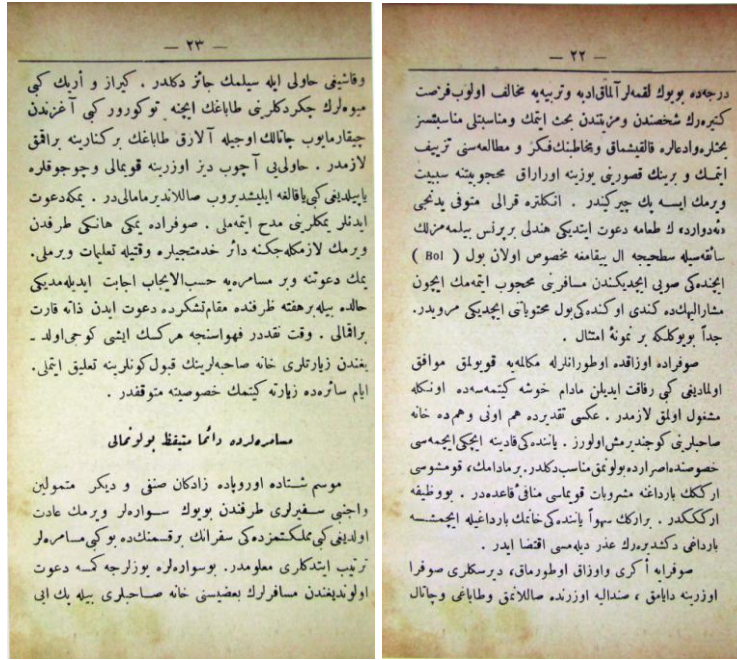 — ٢٢ —
درجه‌ده بویوك لقمه‌لر آلماق ادبه وتربیه‌یه مخالف اولوب فرصت
كتیره‌رك شخصندن ومزیتندن بحث ایتمك ومناسبتلی مناسبتسز
بحثلره وادعالره قالقیشماق ومخاطبنك فكر و مطالعه‌سنی تزییف
ایتمك و برینك قصورینی یوزینه اوراراق محجوبیتنه سببیت
ویرمك ایسه پك چیركیندر . انكلتره قرالی متوفی یدنجی
«ئه‌دوارد» ك طعامه دعوت ایتدیكی هندلی برپرنس بیلمه‌مزلك
سائقه‌سیله سطحیجه ال ییقامغه مخصوص اولان بول ( Bol )
ایچنده‌كی صویی ایچدیكندن مسافرینی محجوب ایتمه‌مك ایچون
مشارالیهك‌ده كندی اوكنده‌كی بول محتویاتنی ایچدیكی مرویدر.
جداً بویوكلكه بر نمونهٔ امتثال .
صوفراده اوزاقده اوطورانلرله مكالمه‌یه قویولمق موافق
اولمادیغی كبی رفاقت ایدیلن مادام خوشه كیتمه‌سه‌ده اونكله
مشغول اولمق لازمدر . عكسی تقدیرده هم اونی وهم‌ده خانه
صاحبلرینی كوجندیرمش اولورز . یاننده‌كی قادینه ایچكی ایچمه‌سی
خصوصنده اصرارده بولونمق مناسب دكلدر. برمادامك، قومشوسی
اركك بارداغنه مشروبات قویماسی منافیٔ قاعده‌در . بو وظیفه
اركككدر . براركك سهواً یاننده‌كی خانمك بارداغیله ایچمشسه
بارداغی دكشدیره‌رك عذر دیله‌مسی اقتضا ایدر .
صوفرایه أكری واوزاق اوطورماق، دیرسكلری صوفرا
اوزرینه دایامق ، صندالیه اوزرنده صاللانمق وطاباغی وچاتال
— ٢٣ —
وقاشیغی حاولی ایله سیلمك جائز دكلدر . كیراز و أریك كبی
میوه‌لرك چكردكلرینی طاباغك ایچنه توكورور كبی آغزندن
چیقارمایوب چاتالك اوجیله آلارق طاباغك بركنارینه براقمق
لازمدر . حاولی‌یی آچوب دیز اوزرینه قویمالی وچوجوقلره
یاپیلدیغی كبی یاقالغه ایلیشدیروب صاللاندیرمامالی‌در . یمكه دعوت
ایدنلر یمكلرینی مدح ایتمه‌ملی . صوفراده یمكی هانكی طرفدن
ویرمك لازمكله‌جكنه دائر خدمتجیلره وقتیله تعلیمات ویرملی.
یمك دعوتنه وبر مسامره‌یه حسب‌الایجاب اجابت ایدیله‌مدیكی
حالده بیله برهفته ظرفنده مقام تشكرده دعوت ایدن ذاته قارت
براقمالی . وقت نقددر فهواسنجه هركسك ایشی كوجی اولد ـ
یغندن زیارتلری خانه صاحبه‌لرینك قبول كونلرینه تعلیق ایتملی.
ایام سائره‌ده زیارته كیتمك خصوصیته متوقفدر .
مسامره‌لرده دائما متیقظ بولونمالی
موسم شتاده اوروپاده زادكان صنفی و دیكر متمولین
واجنبی سفیرلری طرفندن بویوك سواره‌لر ویرمك عادت
اولدیغی كبی مملكتمزده‌كی سفرانك برقسمنك‌ده بوكبی مسامره‌لر
ترتیب ایتدكلری معلومدر. بوسواره‌لره یوزلرجه كمسه دعوت
اولوندیغندن مسافرلرك بعضیسنی خانه صاحبلری بیله پك ایی